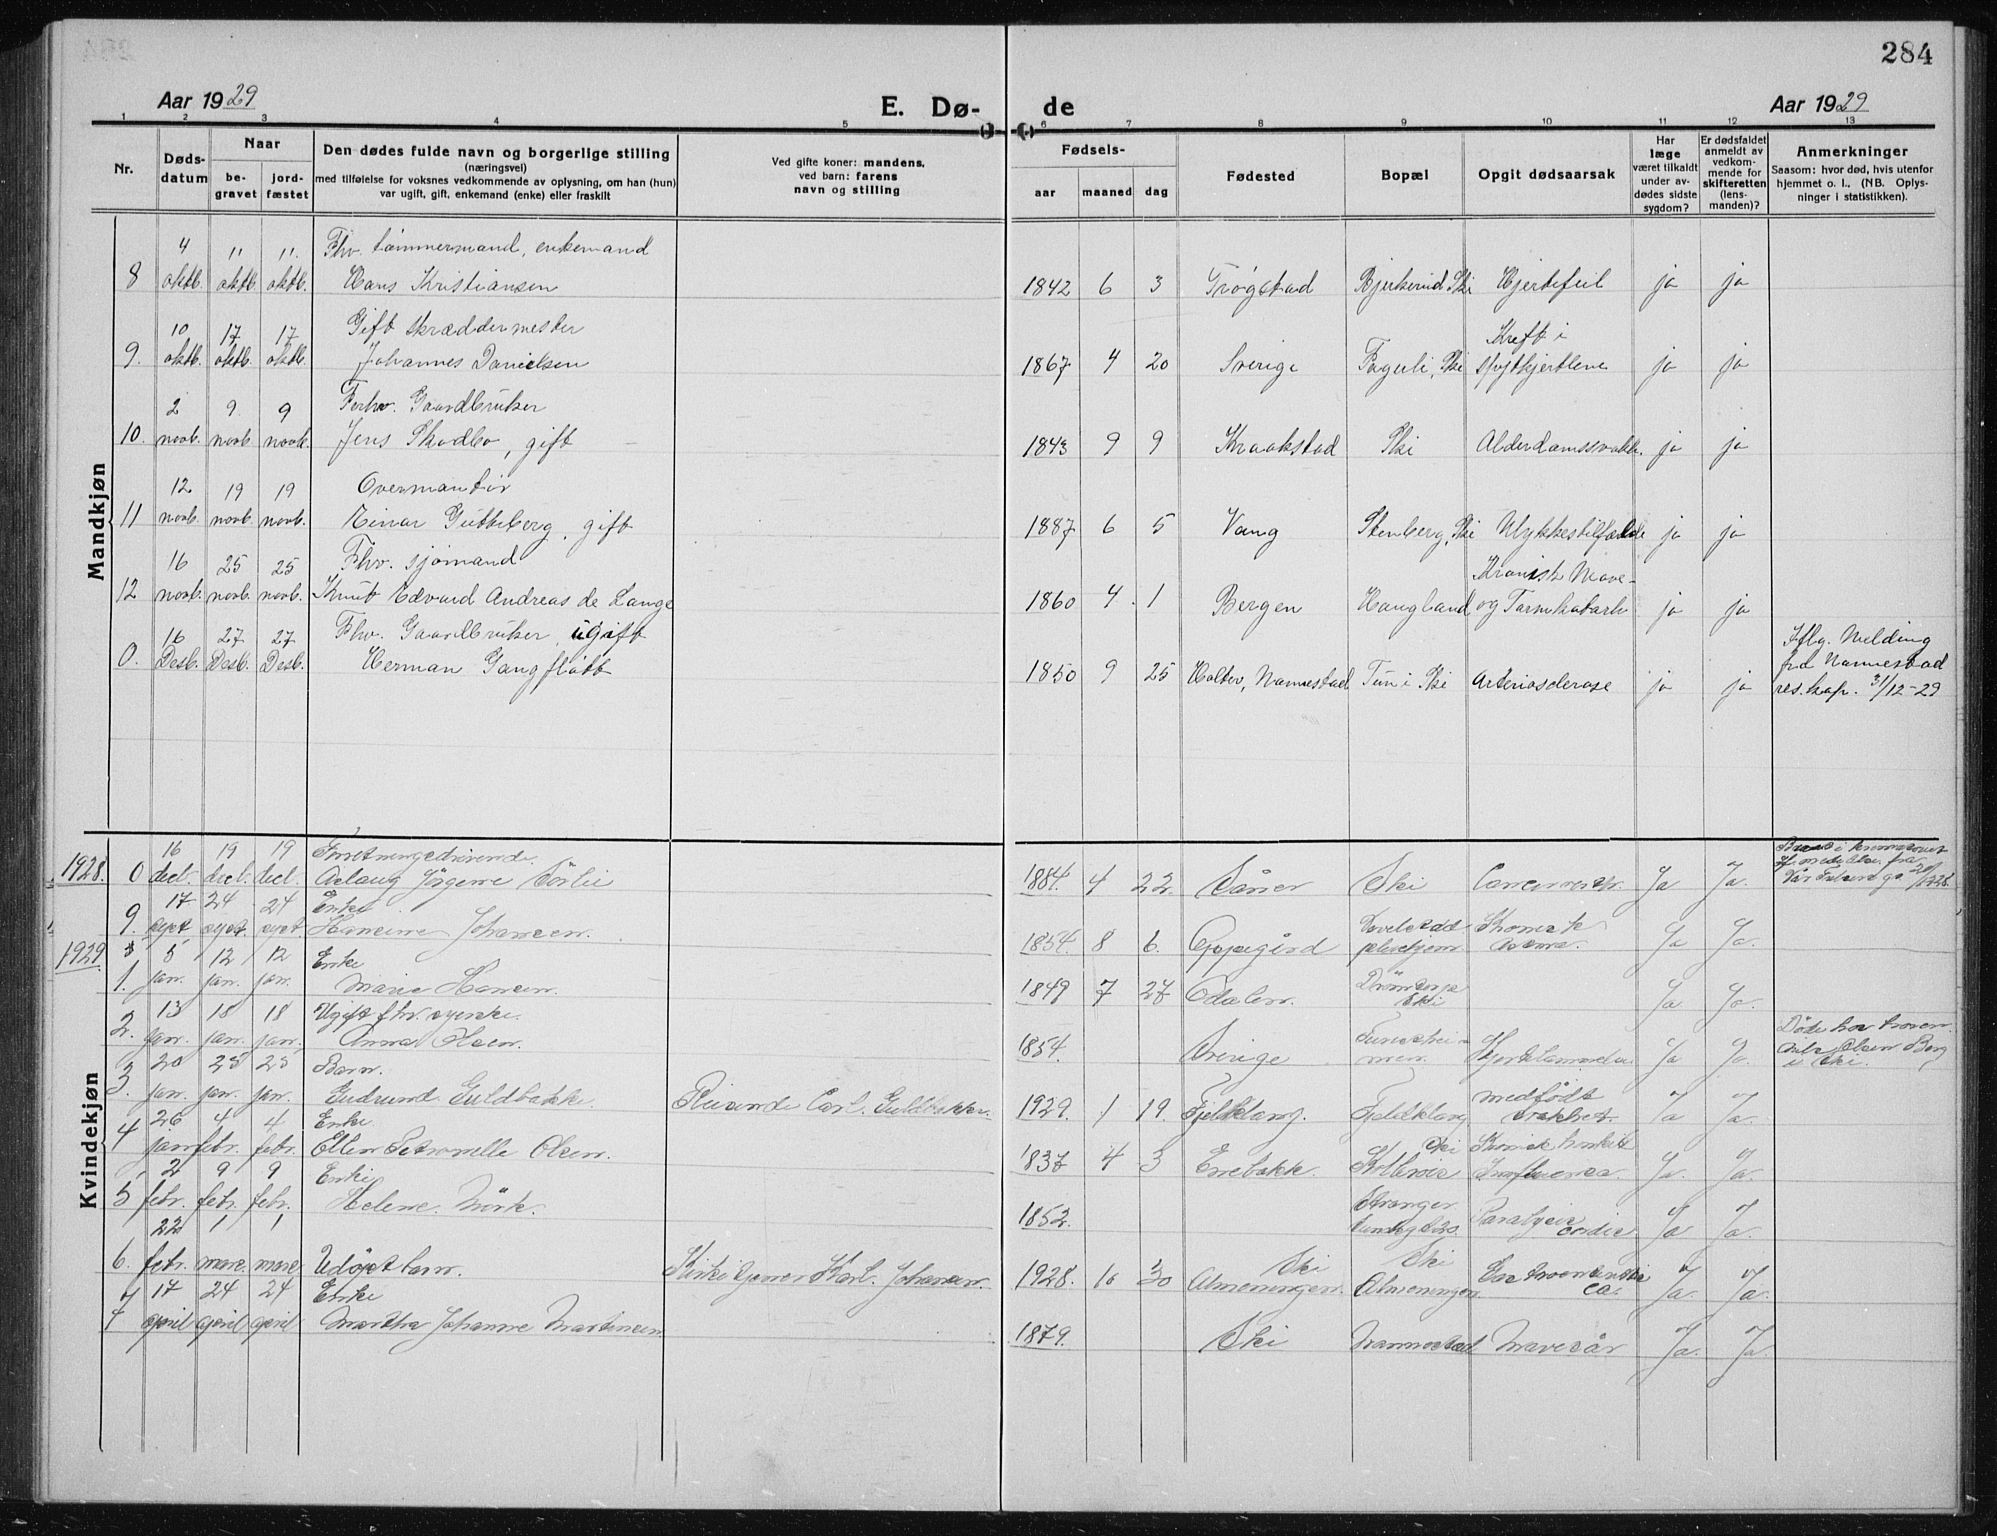 284
Aar 1929
E. Dø-
de
Aar 1929
1 2 3 4 5 6 7 8 9 10 11 12 13
Nr.
Døds-
datum
Naar
be-
gravet
jord-
fæstet
Den dødes fulde navn og borgerlige stilling
(næringsvei)
med tilføielse for voksnes vedkommende av oplysning, om han (hun)
var ugift, gift, enkemand (enke) eller fraskilt
Ved gifte koner: mandens,
ved barn: farens
navn og stilling
Fødsels-
aar maaned dag
Fødested
Bopæl
Opgit dødsaarsak
Har
læge
været tilkaldt
under av-
dødes sidste
sygdom?
Er dødsfaldet
anmeldt av
vedkom-
mende for
skifteretten
(lens-
manden)?
Anmerkninger
Saasom: hvor død, hvis utenfor
hjemmet o. l., (NB. Oplys-
ninger i statistikken).
Mandkjøn
4 11 11. Fhv. tømmermand, enkemand
8 oktb. oktb. oktb. Hans Kristiansen 1842 6 3 Trøgstad Bjerkerud, Ski Hjertefeil ja ja
10 17 17 Gift skræddermester Kreft i
9. oktb. oktb. oktb. Johannes Danielsen 1867 4 20 Sverige Fagerli, Ski spytkjertlene ja ja
2 9. 9 Forhv. Gaardbruker
10. novb. novb. novb. Jens Skodbo, gift 1843 9 9 Kraakstad Ski Alderdomssvakh. ja ja
12 19 19 Overmontør
11 novb. novb. novb. Einar Gutteberg, gift 1887 6 5 Vang Stenberg, Ski Ulykkestilfælde ja ja
16 25 25 Fhv. sjømand Kronisk Mave-
12 novb. novb. novb. Knut Edvard Andreas de Lange 1860 4 1 Bergen Haugland og Tarmkatarh ja ja
16 27 27 Fhv. Gaardbruker, ugift
0. Desb. Desb. Desb. Herman Gangfløtt 1850 9 25 Holter, Nannestad Tun i Ski Arteriosclerose ja ja
Iflg. Melding
fra Nannestad
res. kap. 31/12-29
Kvindekjøn
16 19 19 Forretningsdrivende
1928. 0 decb. decb. decb. Aslaug Jörgine Sörlie 1884. 4 22. Såner Ski Ja Ja.
17 24 24 Enke
9. sept sept. sept. Hansine Johansen. 1854. 8 6. Oppegård Ja Ja.
1929 5 12 12 Enke
1. jan. jan. jan. Marie Hansen. 1849 7 27 Odalen. Ski Ja Ja.
13 18 18 Ugift fhv. syerske.
2. jan. jan. jan. Anna Hoen. 1854. Sverige Hjertelammelse Ja Ja.
Döde hos
Nils Olsen Berg
i Ski.
20 25 25 Barn. medfödt
3. jan. jan. jan. Gudrund Guldbakke. Reisende Carl Guldbakke. 1929. 1 19. Fjeldklang. Fjeldklang svakhet Ja Ja.
26 4 4 Enke Ski
4 jan. febr. febr. Ellen Petronelle Olsen. 1837 4 3 Enebakk. Ja. Ja.
2 9 9 Enke
5 febr. febr. febr. Helene Mörk. 1852. Paralysis cordis. Ja Ja.
22 1 1 Ski Ski
6. febr. mars. mars. Udöpt barn. Kirketjener Karl Johansen. 1928. 10 30 Almenningen. Almenningen. Ja. Ja.
17 24 24 Enke
7 april april april Martha Johanne Martinsen 1879. Ski Nannestad Mavesår Ja. Ja.